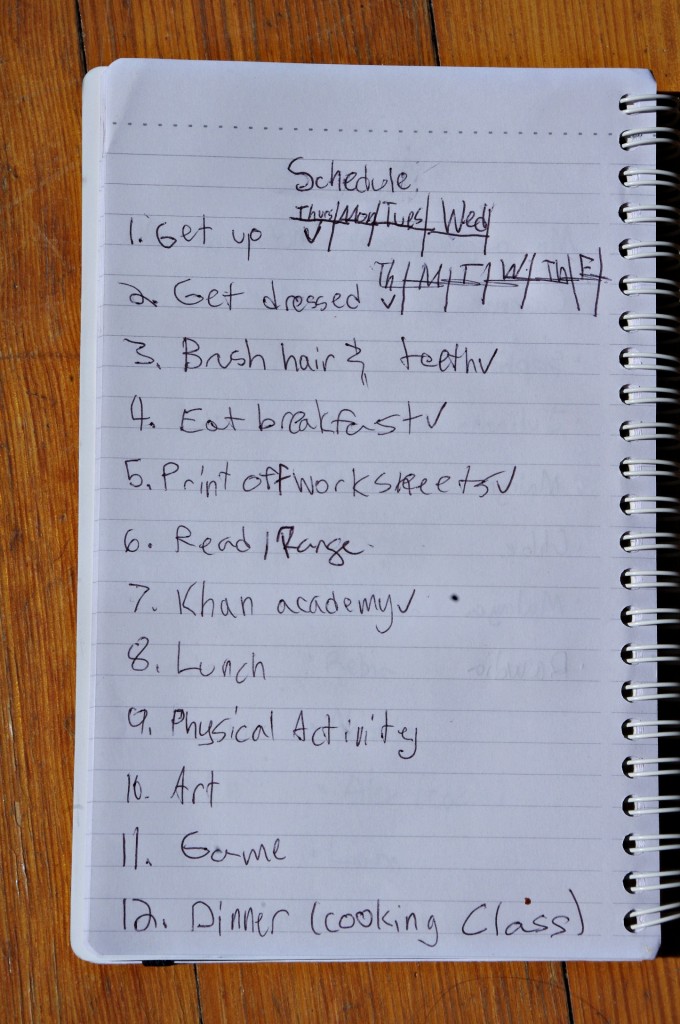 Schedule.
Thurs/Mon/Tues/Wed/
1. Get up ✓
Th/M/T/W/Th/F/
2. Get dressed ✓
3. Brush hair & teeth✓
4. Eat breakfast✓
5. Print off worksheets✓
6. Read / Range.
7. Khan academy✓
8. Lunch
9. Physical Activitey
10. Art
11. Game
12. Dinner (cooking Class)